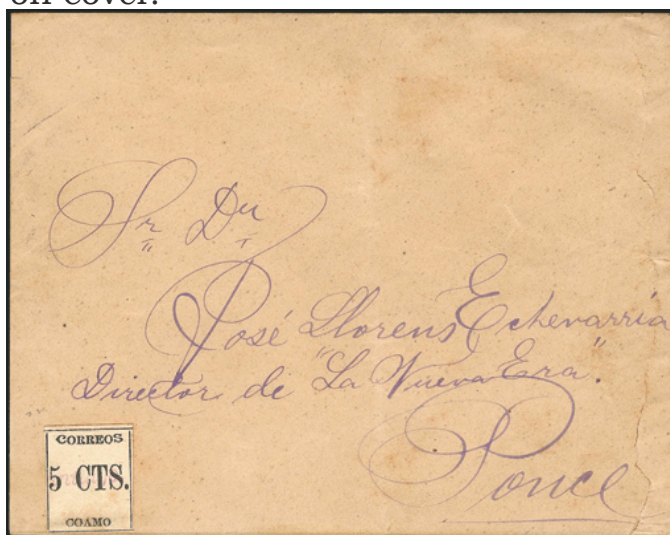 on cover.
Sr Dn
José Llorens Echevarría
Director de "La Nueva Era".
Ponce
CORREOS
5 CTS.
COAMO